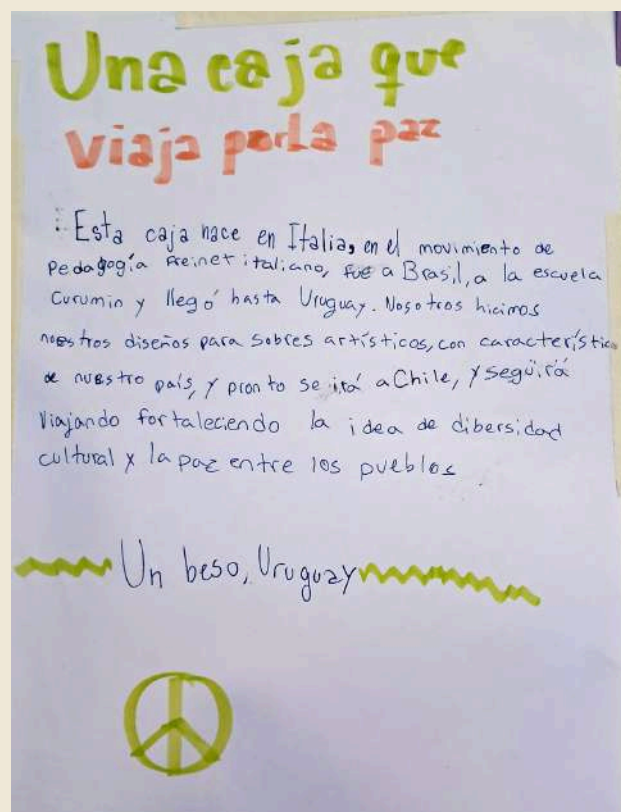 Una caja que
viaja por la paz
Esta caja nace en Italia, en el movimiento de
Pedagogía Freinet italiano, fue a Brasil, a la escuela
Curumin y llegó hasta Uruguay. Nosotros hicimos
nuestros diseños para sobres artísticos, con característic
de nuestro país, y pronto se irá a Chile, y seguirá
viajando fortaleciendo la idea de dibersidad
cultural y la paz entre los pueblos.
Un beso, Uruguay